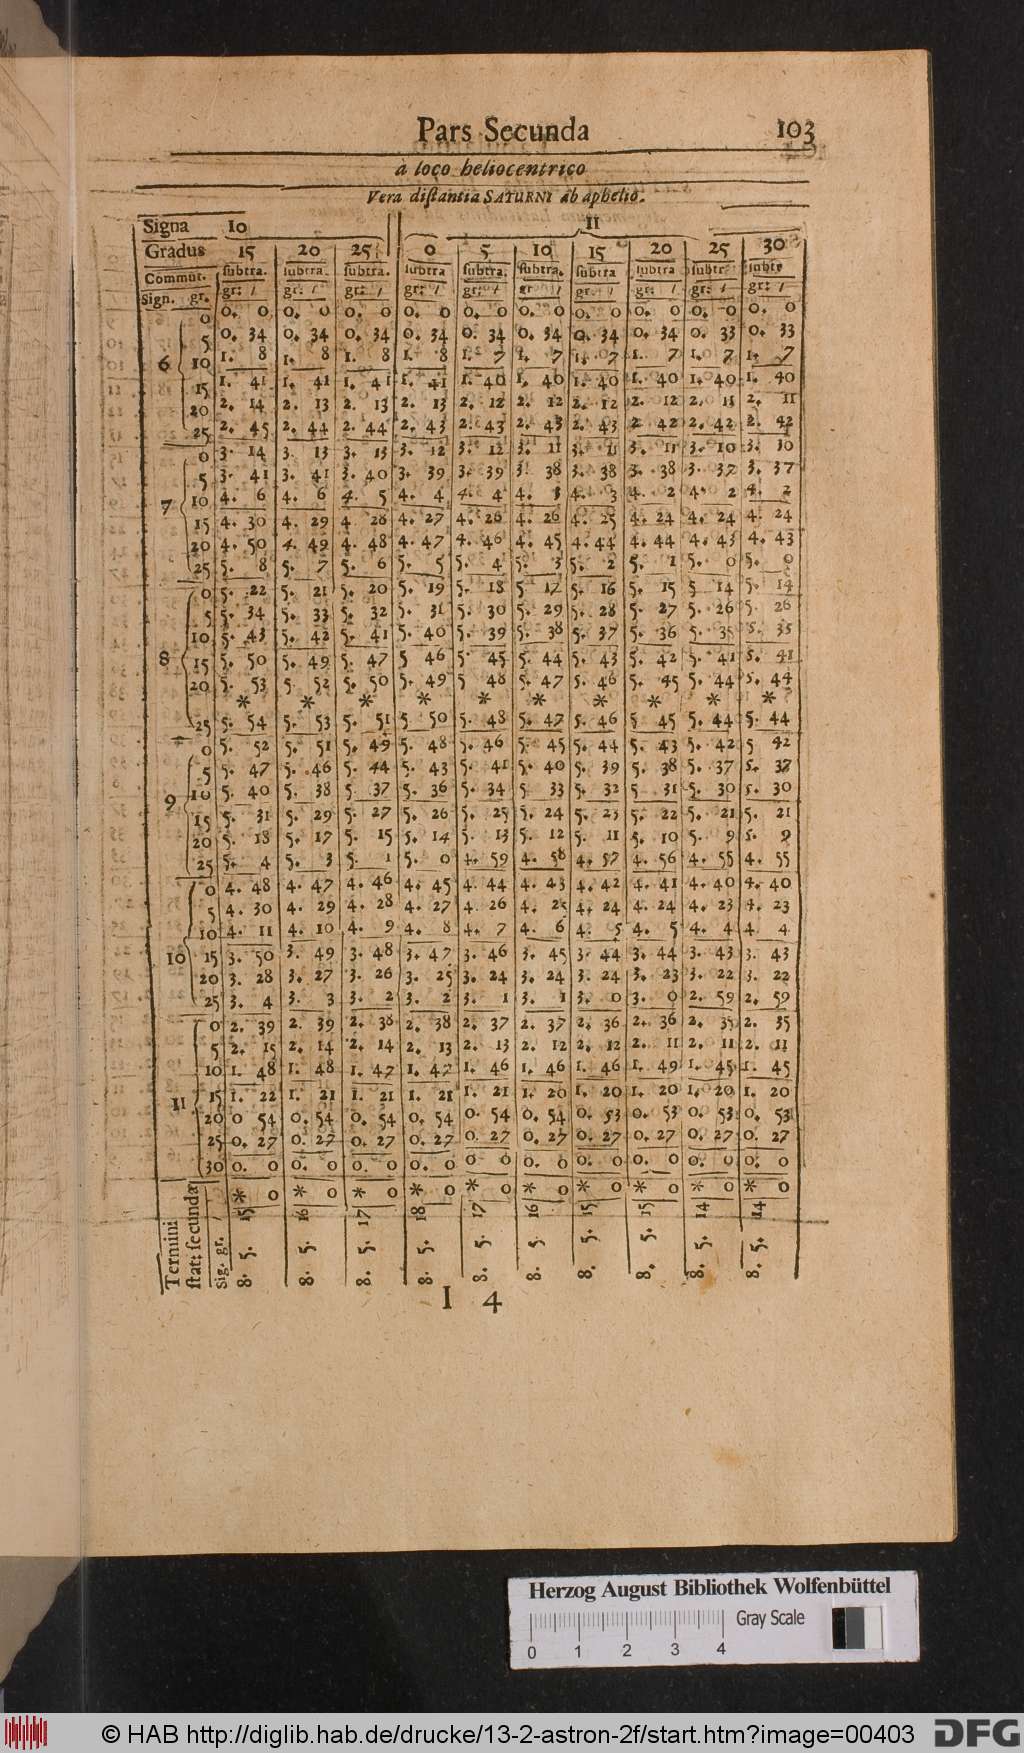 Pars Secunda 103
à loco heliocentrico
Vera distantia SATURNI ab aphelio.
Signa 10 11
Gradus 15 20 25 0 5 10 15 20 25 30
Commut. subtra. subtra. subtra. subtra subtra. subtra. subtra subtra subtr subtr
Sign. gr. gr: / gr: / gr: / gr: / gr: / gr / gr: / gr: / gr: / gr: /
0 0. 0 0. 0 0. 0 0. 0 0. 0 0. 0 0. 0 0. 0 0. 0 0. 0
5 0. 34 0. 34 0. 34 0. 34 0. 34 0. 34 0. 34 0. 34 0. 33 0. 33
6 10 1. 8 1. 8 1. 8 1. 8 1. 7 1. 7 1. 7 1. 7 1. 7 1. 7
15 1. 41 1. 41 1. 41 1. 41 1. 40 1. 40 1. 40 1. 40 1. 40 1. 40
20 2. 14 2. 13 2. 13 2. 13 2. 12 2. 12 2. 12 2. 12 2. 11 2. 11
25 2. 45 2. 44 2. 44 2. 43 2. 43 2. 43 2. 43 2. 42 2. 42 2. 42
0 3. 14 3. 13 3. 13 3. 12 3. 12 3. 11 3. 11 3. 11 3. 10 3. 30
5 3. 41 3. 41 3. 40 3. 39 3. 39 3. 38 3. 38 3. 38 3. 37 3. 37
7 10 4. 6 4. 6 4. 5 4. 4 4. 4 4. 3 4. 3 4. 2 4. 2 4. 2
15 4. 30 4. 29 4 28 4. 27 4. 26 4. 26 4. 25 4. 24 4. 24 4. 24
20 4. 50 4. 49 4. 48 4. 47 4. 46 4. 45 4. 44 4. 44 4. 43 4. 43
25 5. 8 5. 7 5. 6 5. 5 5. 4 5. 3 5. 2 5. 1 5. 0 5. 0
0 5. 22 5. 21 5. 20 5. 19 5. 18 5 17 5. 16 5. 15 5 14 5. 14
5 5. 34 5. 33 5. 32 5. 31 5. 30 5. 29 5. 28 5. 27 5. 26 5. 26
10 5. 43 5. 42 5. 41 5. 40 5. 39 5. 38 5. 37 5. 36 5. 35 5. 35
8 15 5. 50 5. 49 5. 47 5 46 5. 45 5. 44 5. 43 5. 42 5. 41 5. 41
20 5. 53 5 52 5. 50 5. 49 5 48 5. 47 5. 46 5. 45 5. 44 5. 44
* * * * * * * * * *
25 5. 54 5. 53 5. 51 5 50 5. 48 5. 47 5. 46 5 45 5. 44 5. 44
0 5. 52 5. 51 5. 49 5. 48 5. 46 5. 45 5. 44 5. 43 5. 42 5 42
5 5. 47 5. 46 5. 44 5. 43 5. 41 5. 40 5. 39 5. 38 5. 37 5. 37
9 10 5. 40 5. 38 5. 37 5. 36 5. 34 5 33 5. 32 5 31 5. 30 5. 30
15 5. 31 5. 29 5. 27 5. 26 5. 25 5. 24 5. 23 5. 22 5. 21 5. 21
20 5. 18 5. 17 5. 15 5. 14 5. 13 5. 12 5. 11 5. 10 5. 9 5. 9
25 5. 4 5. 3 5. 1 5. 0 4. 59 4. 58 4. 57 4. 56 4. 55 4. 55
0 4. 48 4. 47 4. 46 4. 45 4. 44 4. 43 4. 42 4. 41 4. 40 4. 40
5 4. 30 4. 29 4. 28 4. 27 4. 26 4. 25 4. 24 4. 24 4. 23 4. 23
10 4. 11 4. 10 4. 9 4. 8 4. 7 4. 6 4. 5 4. 5 4. 4 4 4
10 15 3. 50 3. 49 3. 48 3. 47 3. 46 3. 45 3. 44 3. 44 3. 43 3. 43
20 3. 28 3. 27 3. 26 3. 25 3. 24 3. 24 3. 24 3. 23 3. 22 3. 22
25 3. 4 3. 3 3. 2 3. 2 3. 1 3. 1 3. 0 3. 0 2. 59 2. 59
0 2. 39 2. 39 2. 38 2. 38 2. 37 2. 37 2. 36 2. 36 2. 35 2. 35
5 2. 15 2. 14 2. 14 2. 13 2. 13 2. 12 2. 12 2. 11 2. 11 2. 11
10 1. 48 1. 48 1. 47 1. 47 1. 46 1. 46 1. 46 1. 49 1. 45 1. 45
11 15 1. 22 1. 21 1. 21 1. 21 1. 21 1. 20 1. 20 1. 20 1. 20 1. 20
20 0 54 0. 54 0. 54 0. 54 0. 54 0. 54 0. 53 0. 53 0. 53 0. 53
25 0. 27 0. 27 0. 27 0. 27 0. 27 0. 27 0. 27 0. 27 0. 27 0. 27
30 0. 0 0. 0 0. 0 0. 0 0 0 0. 0 0. 0 0. 0 0. 0 0. 0
* 0 * 0 * 0 * 0 * 0 * 0 * 0 * 0 * 0 * 0
Termini
stat: secundæ
Sig. gr. /
8. 5. 15 8. 5. 16 8. 5. 17 8. 5. 18 8. 5. 17 8. 5. 16 8. 5. 15 8. 5. 15 8. 5. 14 8. 5. 14
I 4
Herzog August Bibliothek Wolfenbüttel
Gray Scale
0 1 2 3 4
© HAB http://diglib.hab.de/drucke/13-2-astron-2f/start.htm?image=00403
DFG